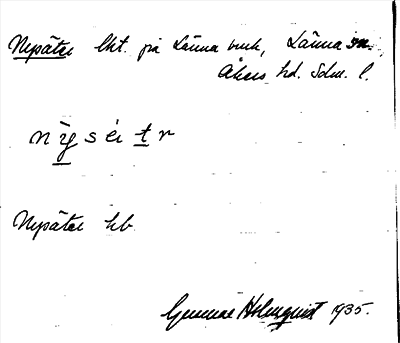 Nysätter lht. på Länna bruk, Länna sn.,
Åkers hd. Sdm. l.
nysétr
Nysätter hb.
Gunnar Holmquist 1935.